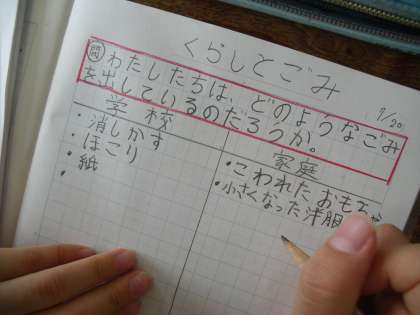 くらしとごみ
7/20
問 わたしたちは、どのようなごみ
を出しているのだろうか。
学校
・消しかす
・ほこり
・紙
・
家庭
・こわれたおもちゃ
・小さくなった洋服